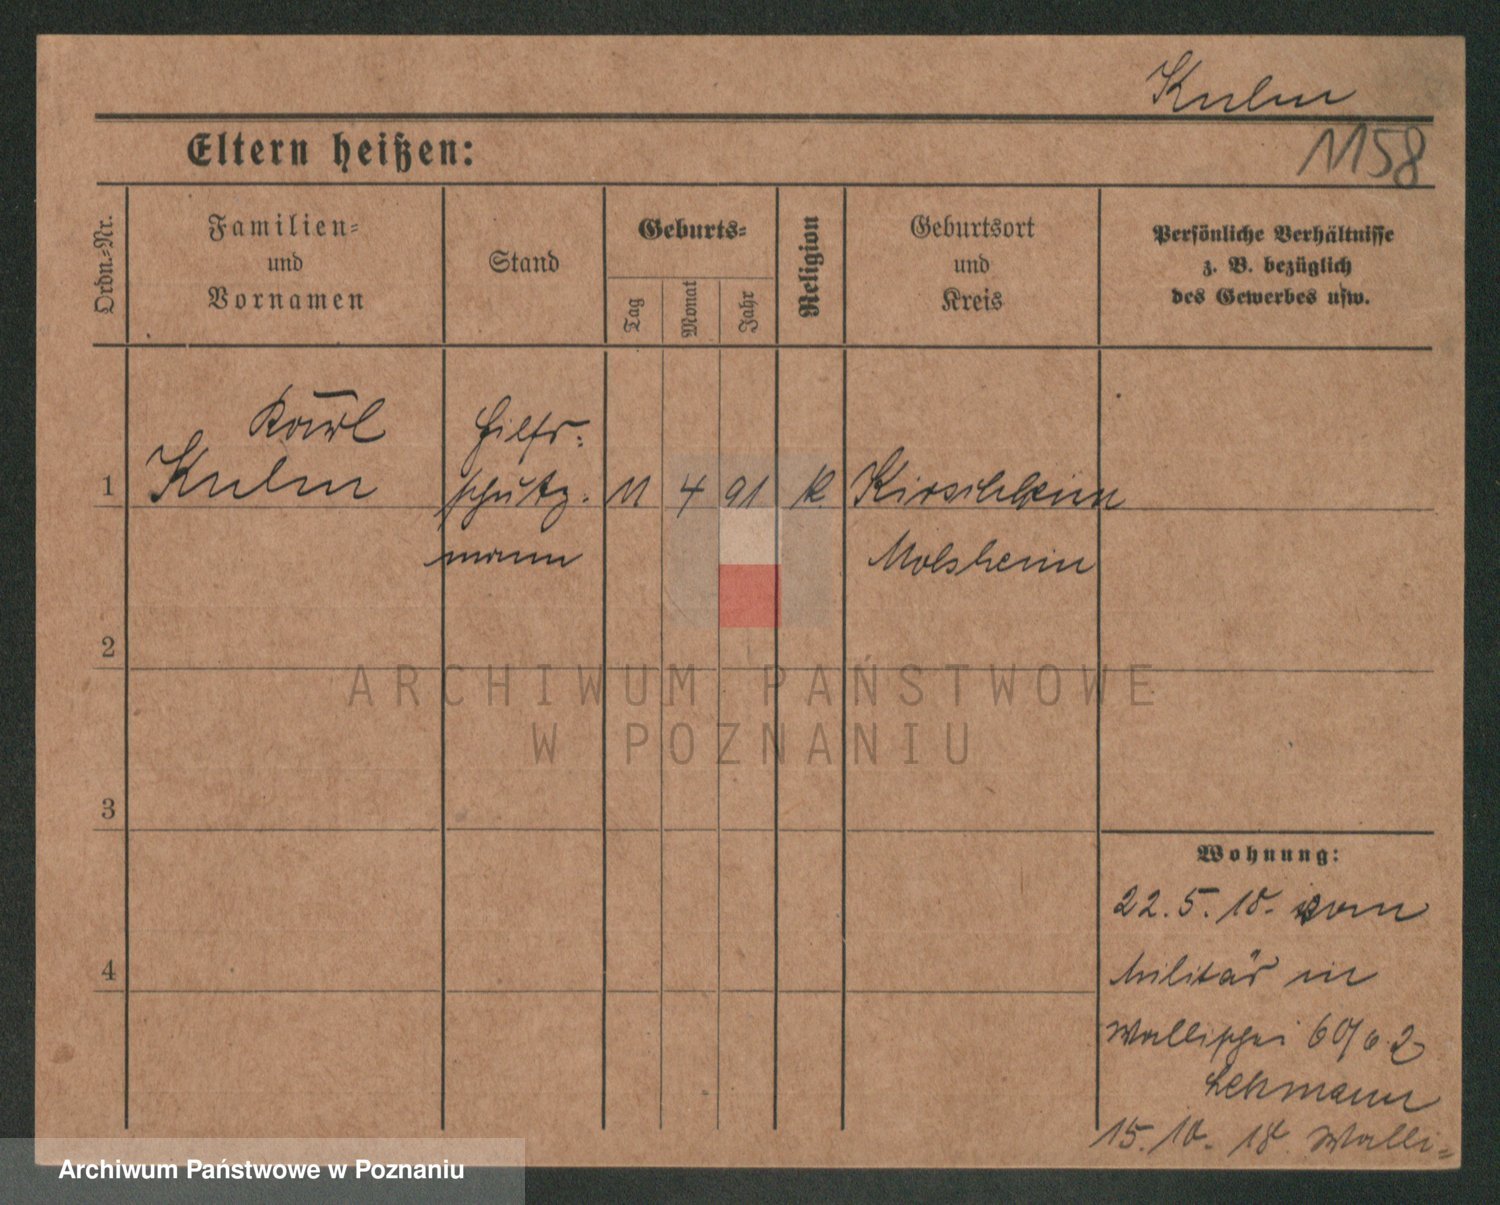 Kulm
1158
Eltern heißen:
Ordn.-Nr.
Familien-
und
Vornamen
Stand
Geburts-
Tag
Monat
Jahr
Religion
Geburtsort
und
Kreis
Persönliche Verhältnisse
z. B. bezüglich
des Gewerbes usw.
Karl
Hilfs-
1 Kulm schutz- 11 4 91 K. Kirschheim
mann Molsheim
2
ARCHIWUM PAŃSTWOWE
W POZNANIU
3
Wohnung:
22.5.18. vom
4
Militär in
Wallischei 60/62
Lehmann
15.10.18. Walli-
Archiwum Państwowe w Poznaniu